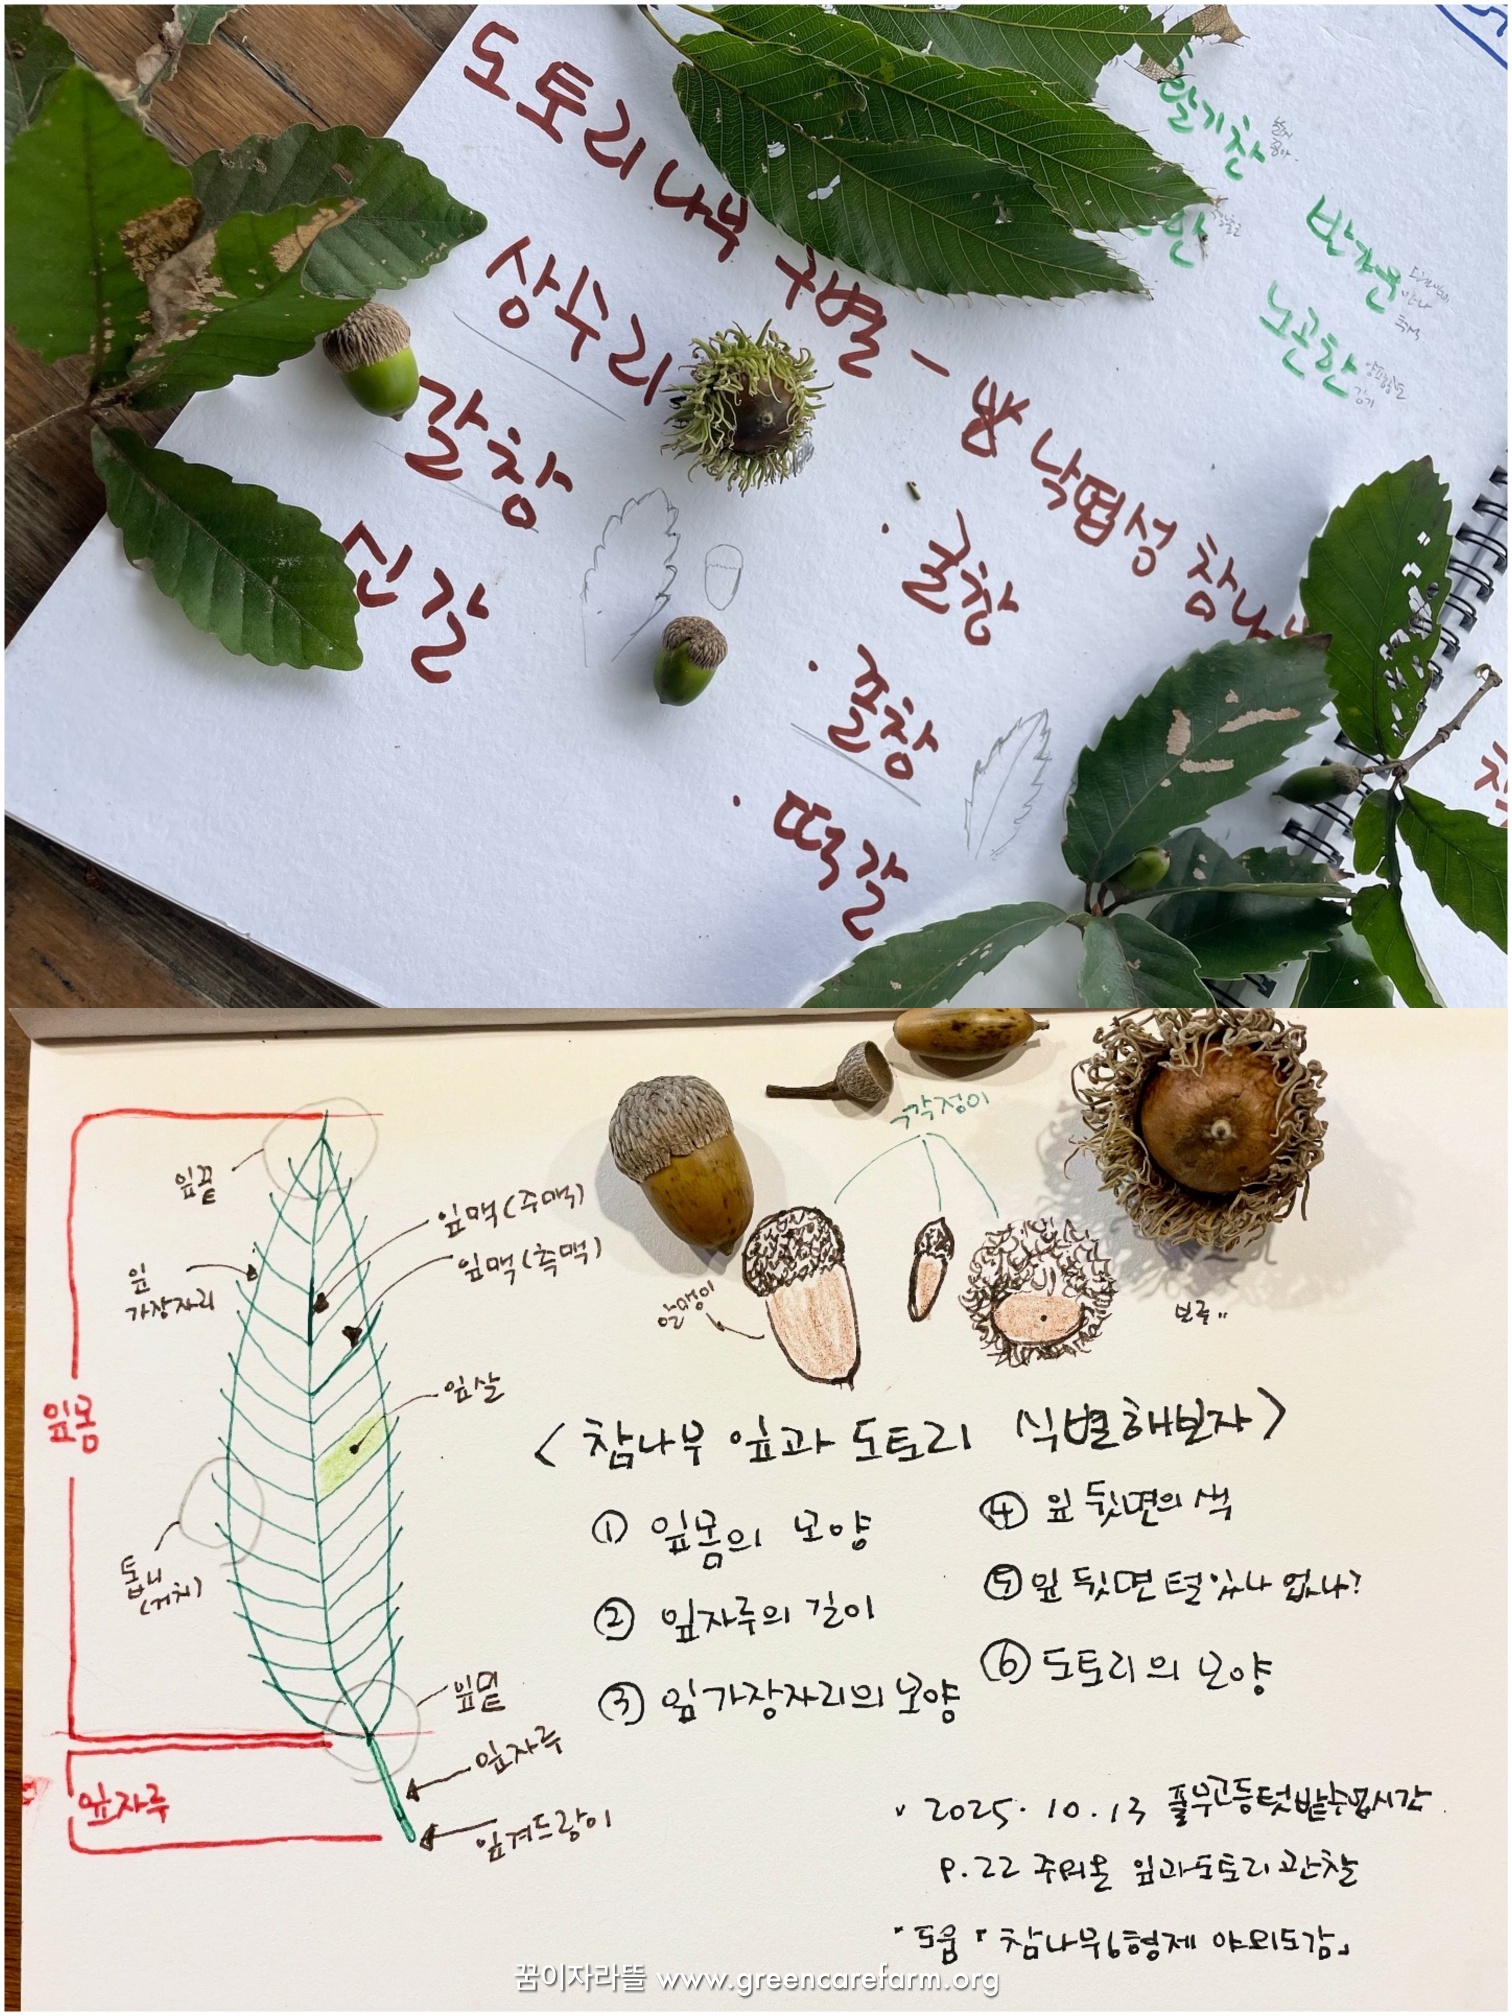 도토리나무 구별 - 낙엽성 참나
상수리
갈참
신갈
굴참
졸참
떡갈
딸기찬
반가운
노곤한
잎끝
잎
가장자리
잎맥(주맥)
잎맥(측맥)
잎살
톱니
(거치)
잎밑
잎자루
잎겨드랑이
잎몸
잎자루
각정이
알맹이
<참나무 잎과 도토리 식별해보자>
① 잎몸의 모양
② 잎자루의 길이
③ 잎가장자리의 모양
④ 잎 뒷면의 색
⑤ 잎 뒷면 털 있나 없나?
⑥ 도토리의 모양
2025.10.13 풀무고등텃밭수업시간
P.22 주워온 잎과 도토리 관찰
도움 「참나무6형제 야외도감」
꿈이자라뜰 www.greencarefarm.org